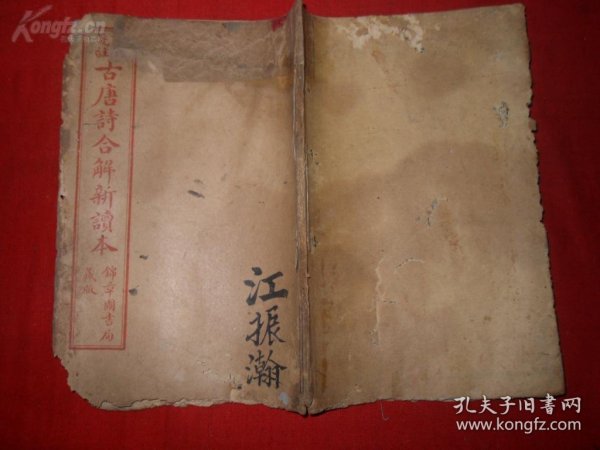 Kongfz.com
古唐詩合解新讀本
錦章圖書局
藏版
江振瀚
孔夫子旧书网
www.kongfz.com